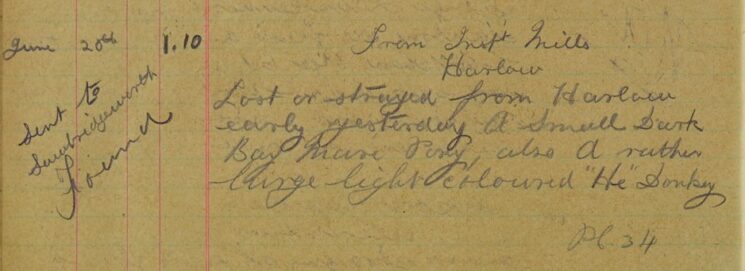 June 20th 1.10
From Inspt Mills
Harlow
Sent to
Sawbridgeworth
Found
Lost or strayed from Harlow
early yesterday A Small Dark
Bay Mare Pony, also A rather
large light coloured "He" Donkey
Pc. 34